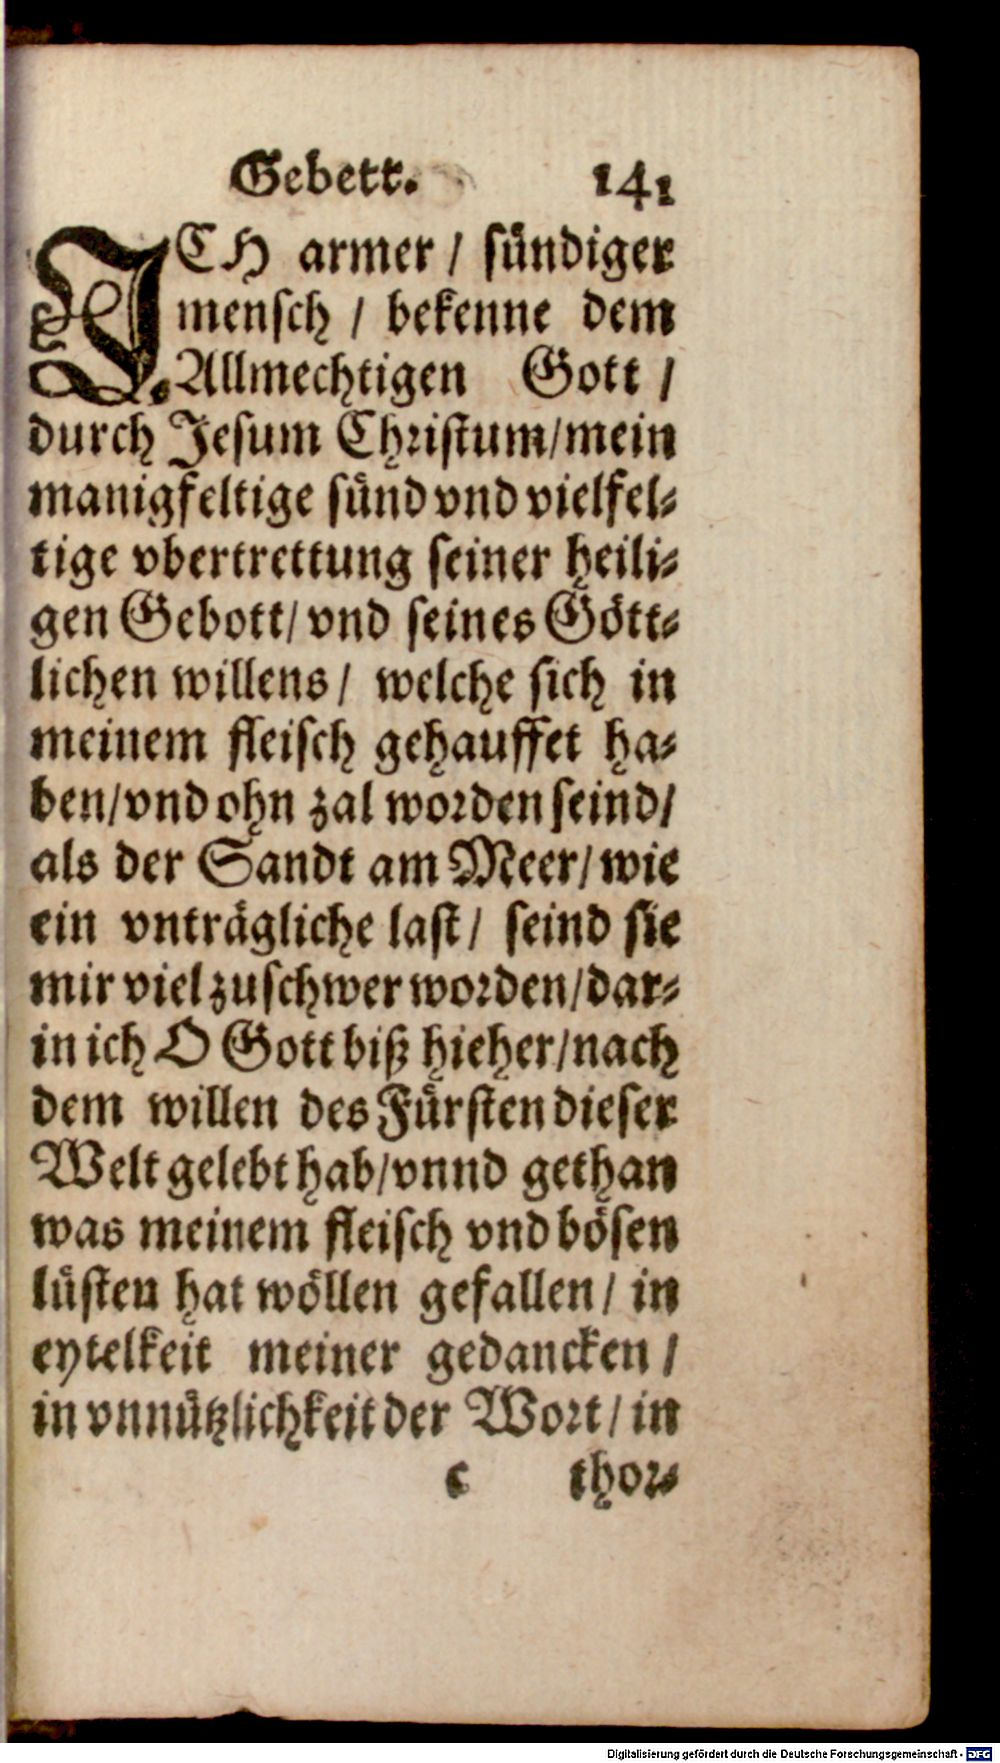 Gebett. 141
ICH armer / sündiger
mensch / bekenne dem
Allmechtigen Gott /
durch Jesum Christum/mein
manigfeltige sünd vnd vielfel-
tige vbertrettung seiner heili-
gen Gebott/ vnd seines Gött-
lichen willens / welche sich in
meinem fleisch gehauffet ha-
ben/vnd ohn zal worden seind/
als der Sandt am Meer/ wie
ein vnträgliche last / seind sie
mir viel zuschwer worden/dar-
in ich O Gott biß hieher/nach
dem willen des Fürsten dieser
Welt gelebt hab/vnnd gethan
was meinem fleisch vnd bösen
lüsten hat wöllen gefallen / in
eytelkeit meiner gedancken /
in vnnützlichkeit der Wort / in
c thor-
Digitalisierung gefördert durch die Deutsche Forschungsgemeinschaft - DFG